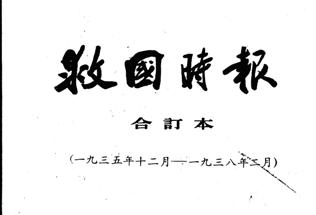 救國時報
合訂本
(一九三五年十二月——一九三八年二月)